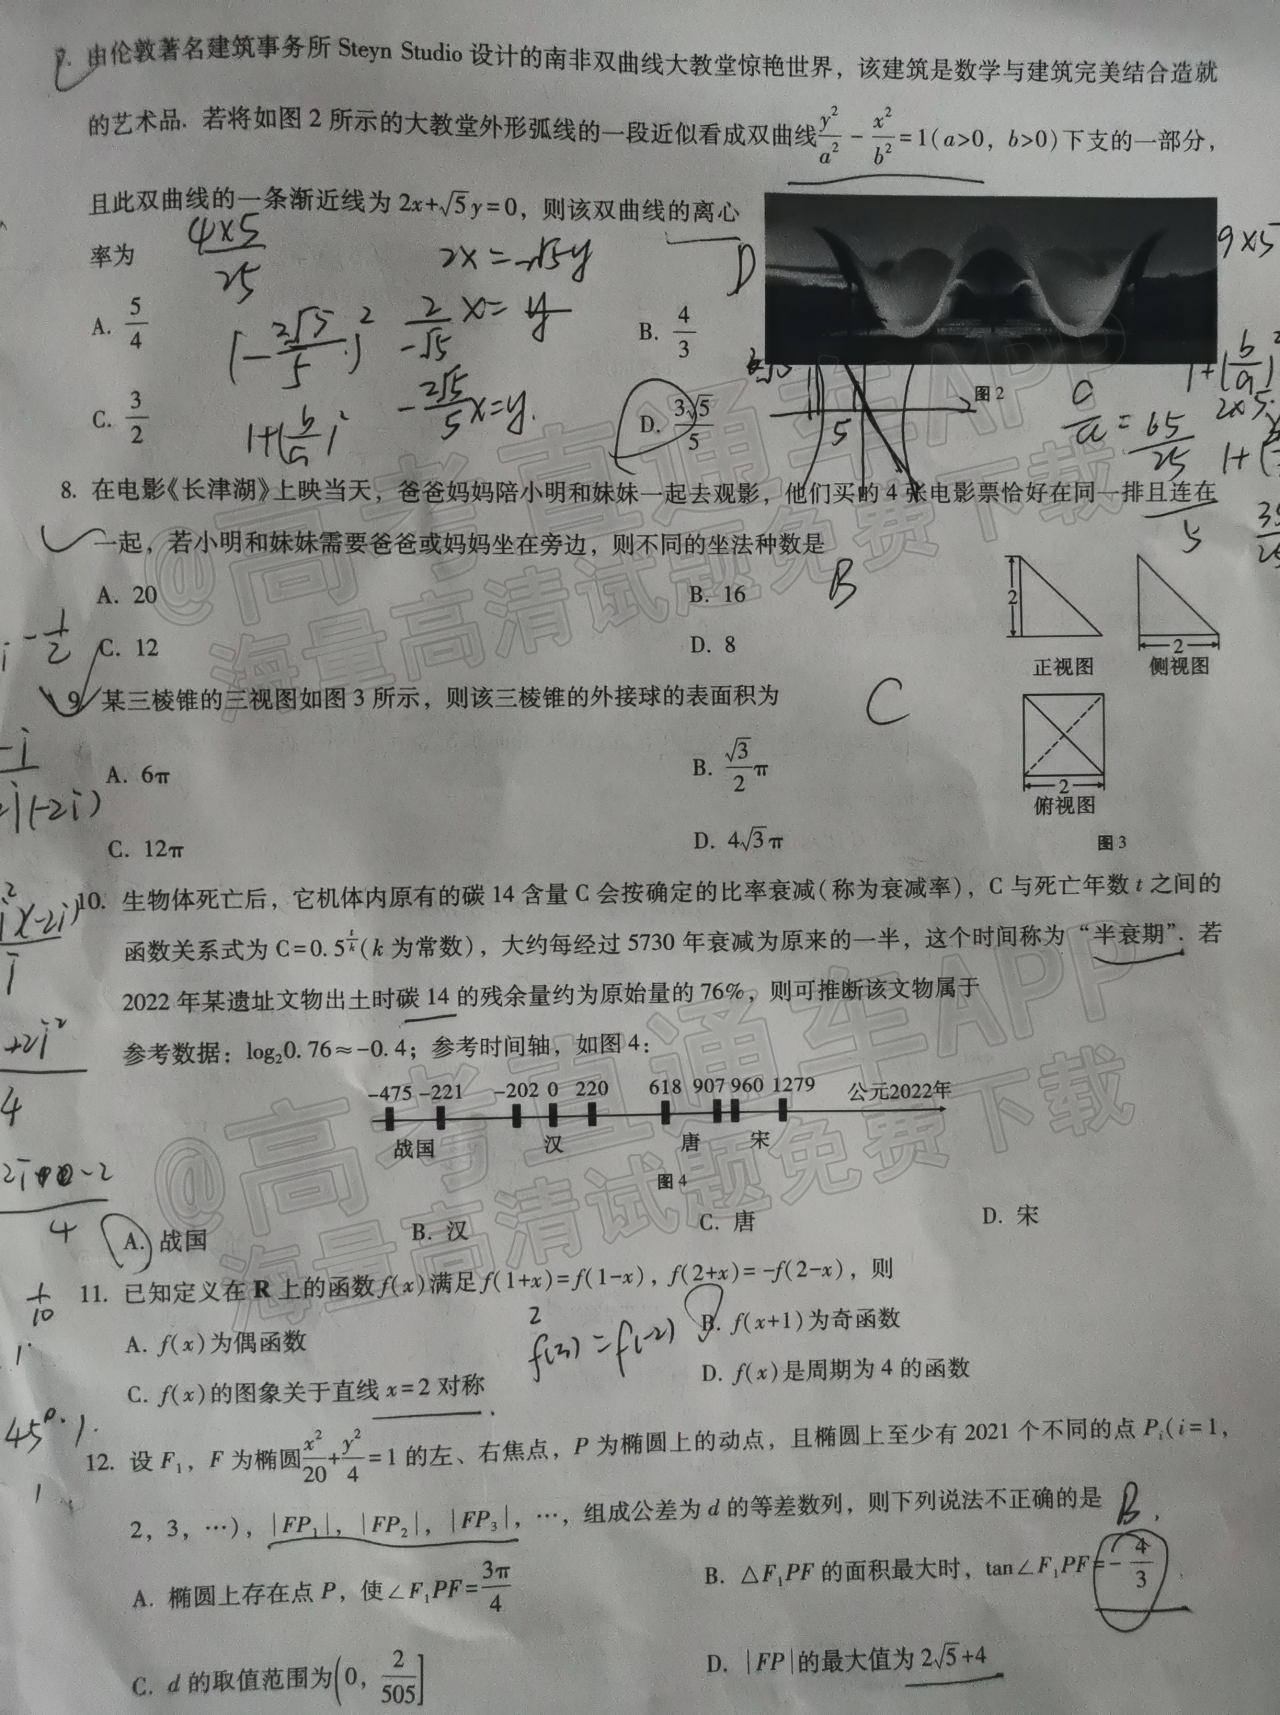 7. 由伦敦著名建筑事务所 Steyn Studio 设计的南非双曲线大教堂惊艳世界，该建筑是数学与建筑完美结合造就
的艺术品. 若将如图 2 所示的大教堂外形弧线的一段近似看成双曲线y²/a² - x²/b² = 1(a>0, b>0)下支的一部分，
且此双曲线的一条渐近线为 2x+√5y=0，则该双曲线的离心
率为
4×5/25
2x=-√5y
D
9×5
A. 5/4
(-2√5/5)²
2/-√5 x=y
B. 4/3
1+(b/a)²
图 2
C. 3/2
1+(b/a)²
-2√5/5 x=y.
D. 3√5/5
5
c/a=
65/25
2×5
8. 在电影《长津湖》上映当天，爸爸妈妈陪小明和妹妹一起去观影，他们买的 4 张电影票恰好在同一排且连在
一起，若小明和妹妹需要爸爸或妈妈坐在旁边，则不同的坐法种数是
B
A. 20
B. 16
C. 12
D. 8
2
2
正视图
侧视图
9. 某三棱锥的三视图如图 3 所示，则该三棱锥的外接球的表面积为
C
A. 6π
B. √3/2 π
2
俯视图
C. 12π
D. 4√3π
图 3
10. 生物体死亡后，它机体内原有的碳 14 含量 C 会按确定的比率衰减(称为衰减率)，C 与死亡年数 t 之间的
函数关系式为 C=0.5^(t/k)(k 为常数)，大约每经过 5730 年衰减为原来的一半，这个时间称为“半衰期”. 若
2022 年某遗址文物出土时碳 14 的残余量约为原始量的 76%，则可推断该文物属于
参考数据：log₂0.76≈-0.4；参考时间轴，如图 4：
-475 -221 -202 0 220 618 907 960 1279 公元2022年
战国 汉 唐 宋
图 4
A. 战国
B. 汉
C. 唐
D. 宋
11. 已知定义在 R 上的函数 f(x)满足 f(1+x)=f(1-x), f(2+x)=-f(2-x)，则
A. f(x)为偶函数
B. f(x+1)为奇函数
C. f(x)的图象关于直线 x=2 对称
D. f(x)是周期为 4 的函数
12. 设 F₁，F 为椭圆x²/20+y²/4=1 的左、右焦点，P 为椭圆上的动点，且椭圆上至少有 2021 个不同的点 Pᵢ(i=1,
2, 3, …)，|FP₁|, |FP₂|, |FP₃|, …, 组成公差为 d 的等差数列，则下列说法不正确的是
B.
A. 椭圆上存在点 P，使∠F₁PF=3π/4
B. △F₁PF 的面积最大时，tan∠F₁PF=-4/3
C. d 的取值范围为(0, 2/505]
D. |FP|的最大值为 2√5+4
@高考直通车APP
海量高清试题免费下载
@高考直通车APP
海量高清试题免费下载